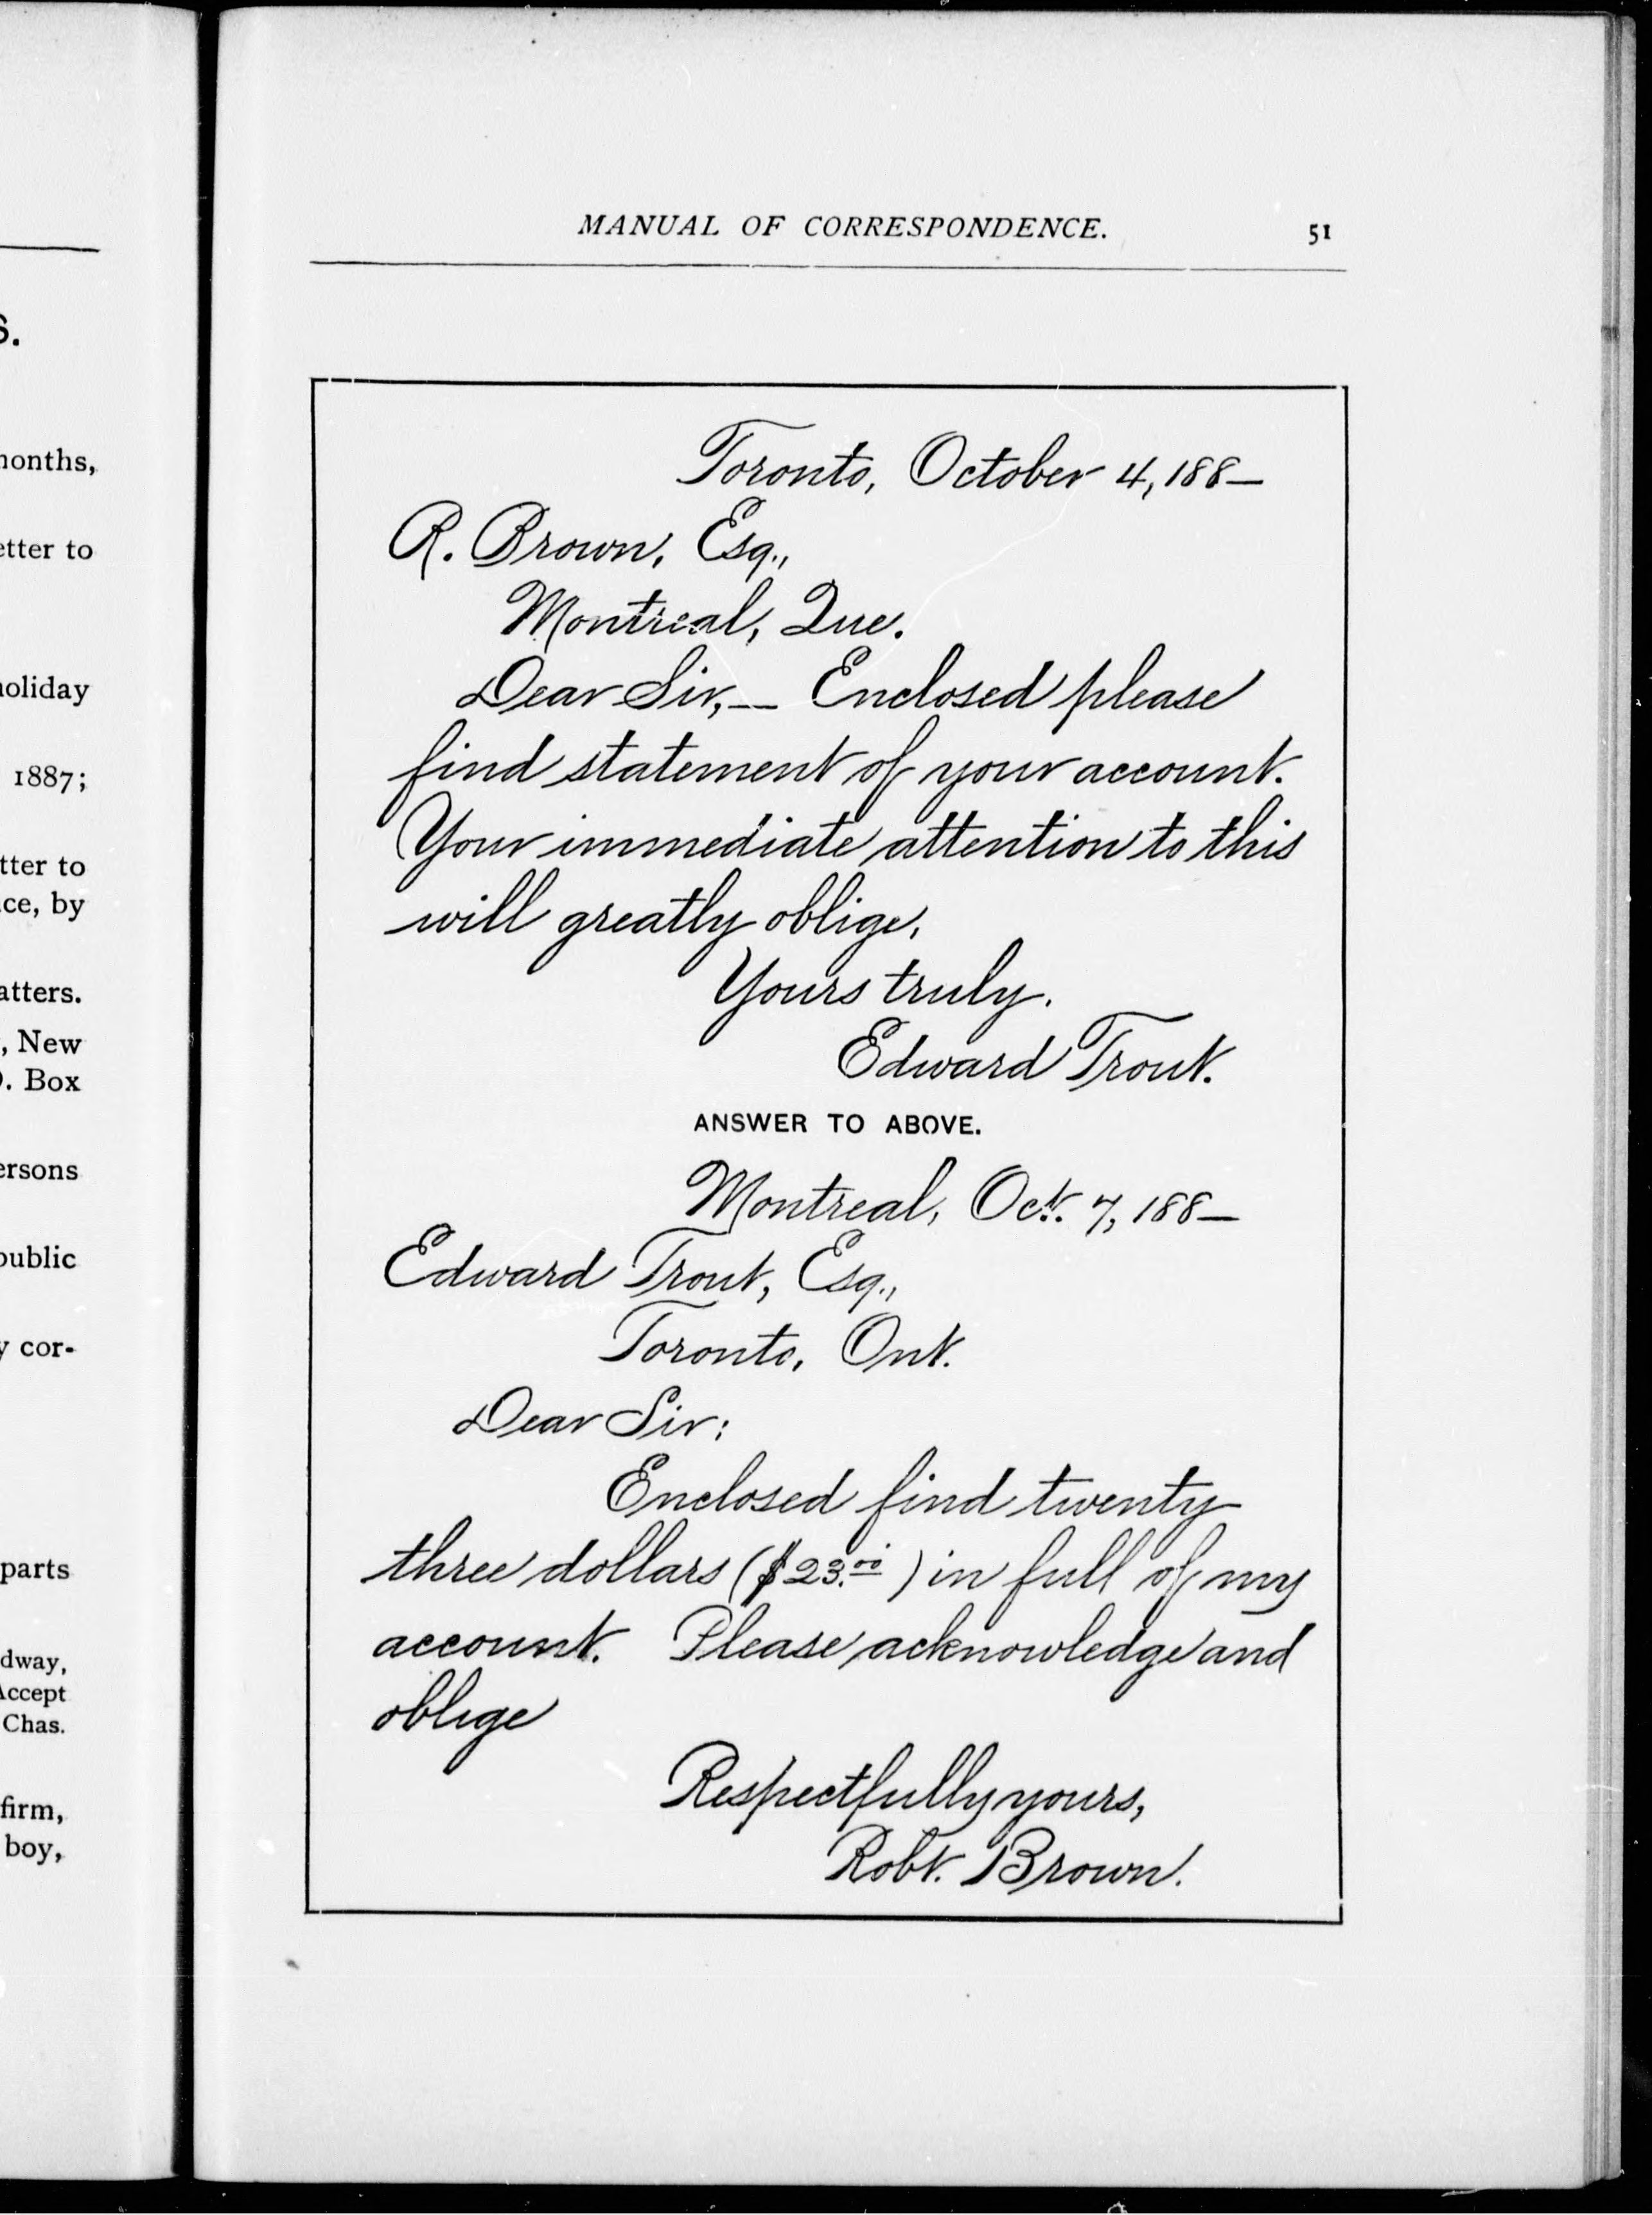 S.
months,
etter to
holiday
1887;
tter to
ce, by
atters.
, New
O. Box
ersons
public
y cor-
parts
dway,
Accept
Chas.
firm,
boy,
MANUAL OF CORRESPONDENCE. 51
Toronto, October 4, 188—
R. Brown, Esq.,
Montreal, Que.
Dear Sir,— Enclosed please
find statement of your account.
Your immediate attention to this
will greatly oblige,
Yours truly.
Edward Trout.
ANSWER TO ABOVE.
Montreal, Oct. 7, 188—
Edward Trout, Esq.,
Toronto, Ont.
Dear Sir:
Enclosed find twenty
three dollars ($23.00) in full of my
account. Please acknowledge and
oblige
Respectfully yours,
Robt. Brown.